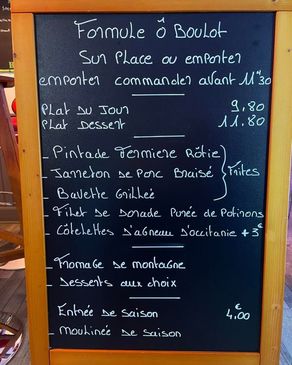 Formule Ô Boulot
Sur Place ou emporter
emporter commander avant 11H30
Plat Du Jour 9.80
Plat Dessert 11.80
- Pintade Fermiere Rôtie
- Jarreton de Porc Braisé } Frites
- Bavette Grillée
- Filet de Dorade Purée de Potirons
- Côtelettes D'agneau D'occitanie + 3€
- Fromage de montagne
- Desserts aux choix
- Entrée de saison 4,00€
- moulinée de saison